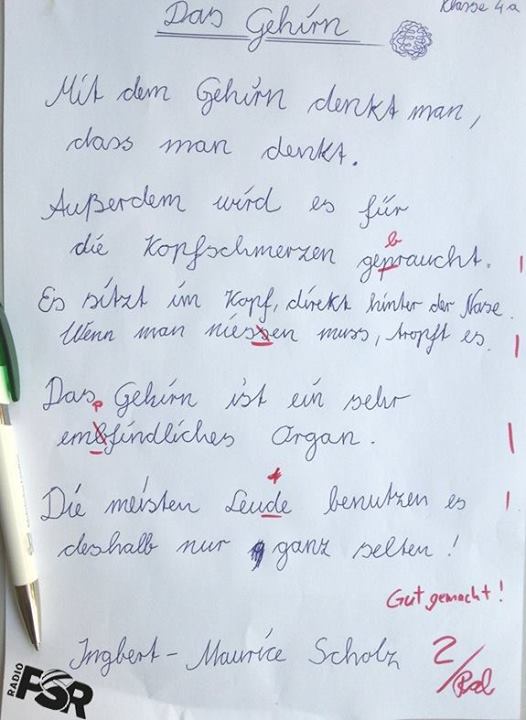 Klasse 4a
Das Gehirn
Mit dem Gehirn denkt man,
dass man denkt.
Außerdem wird es für
b
die Kopfschmerzen gepraucht.
Es sitzt im Kopf, direkt hinter der Nase.
Wenn man niessen muss, tropft es.
Das Gehirn ist ein sehr
p
embfindliches Organ.
t
Die meisten Leude benutzen es
deshalb nur ganz selten!
Gut gemacht!
Ingbert-Maurice Scholz
2/
RADIO PSR